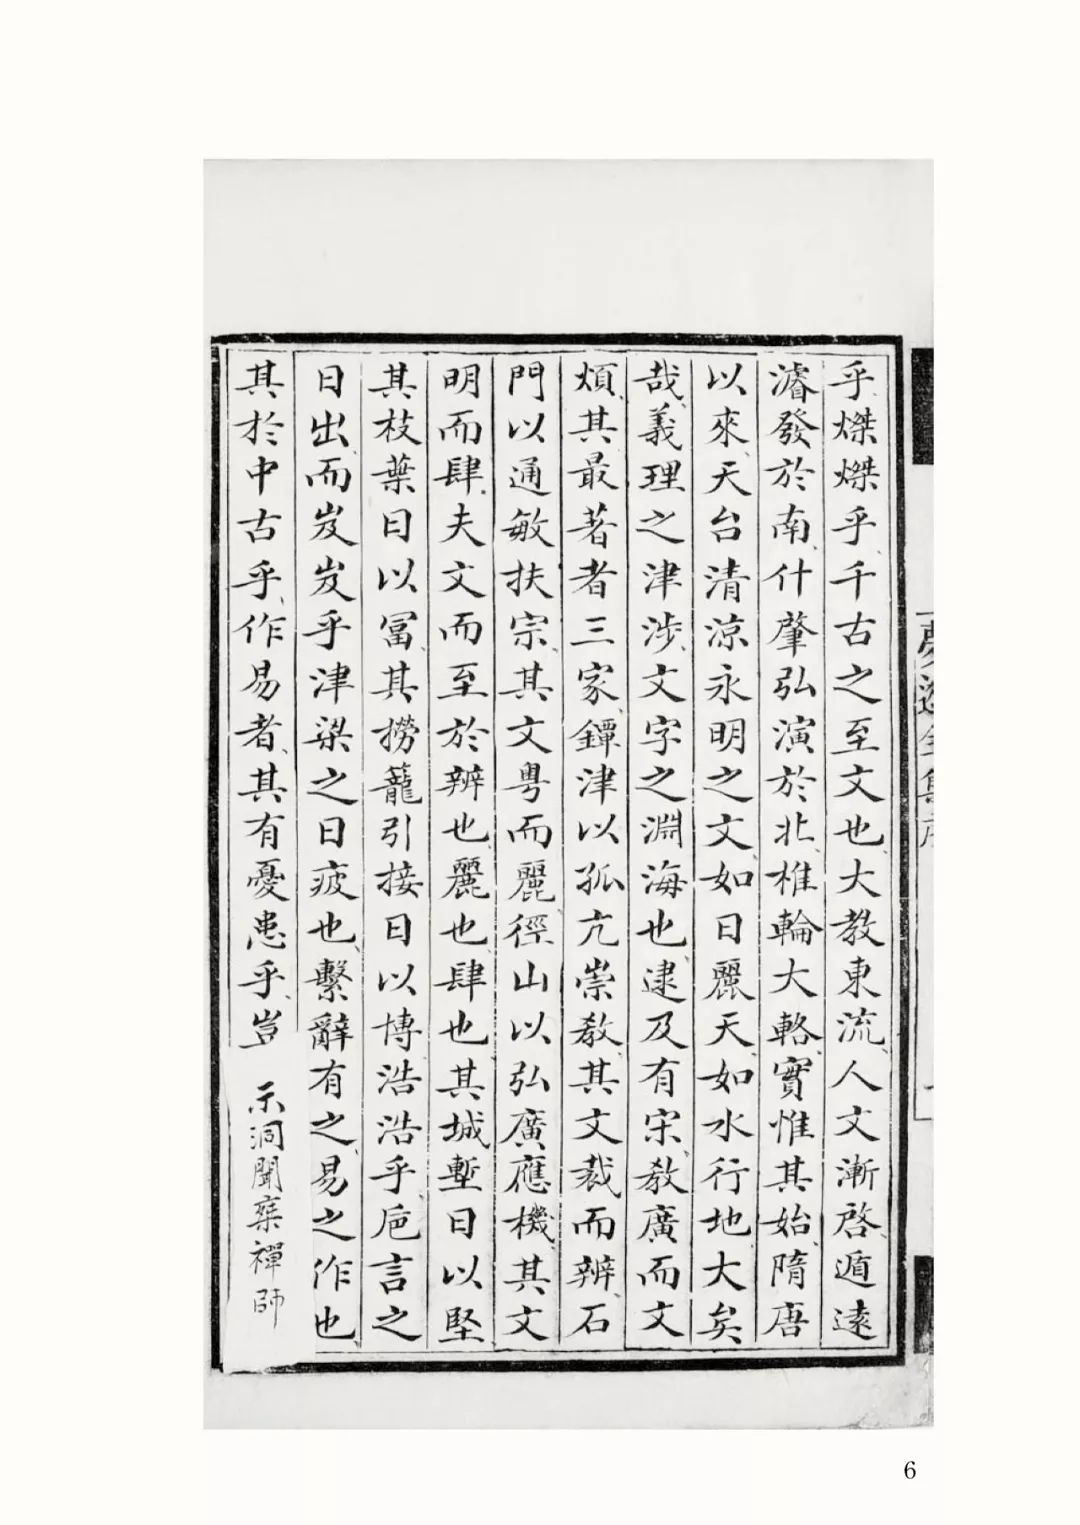 乎燦燦乎千古之至文也大教東流人文漸啓遁遠
濬發於南什肇弘演於北椎輪大輅實惟其始隋唐
以來天台清涼永明之文如日麗天如水行地大矣
哉義理之津涉文字之淵海也逮及有宋教廣而文
煩其最著者三家鐔津以孤亢崇教其文裁而辨石
門以通敏扶宗其文粤而麗徑山以弘廣應機其文
明而肆夫文而至於辨也麗也肆也其城塹日以堅
其枝葉日以冨其撈籠引接日以博浩浩乎巵言之
日出而岌岌乎津梁之日疲也繫辭有之易之作也
其於中古乎作易者其有憂患乎豈
示洞聞棄禪師
6